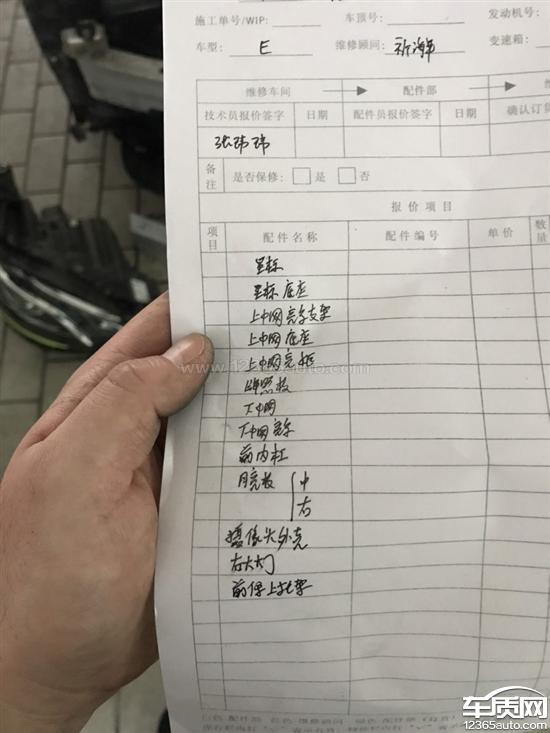 施工单号/WIP: 车顶号: 发动机号:
车型: E 维修顾问: 变速箱:
维修车间 配件部
技术员报价签字 日期 配件员报价签字 日期 确认订
张玮玮
备注 是否保修: 是 否
报价项目
项目 配件名称 配件编号 单价 数量
星标
星标底座
上中网亮条支架
上中网底座
上中网亮框
牌照板
下中网
下中网亮条
前内杠
月亮板 中
右
摄像头外壳
右大灯
前保上支架
www.12365auto.com
车质网
12365auto.com